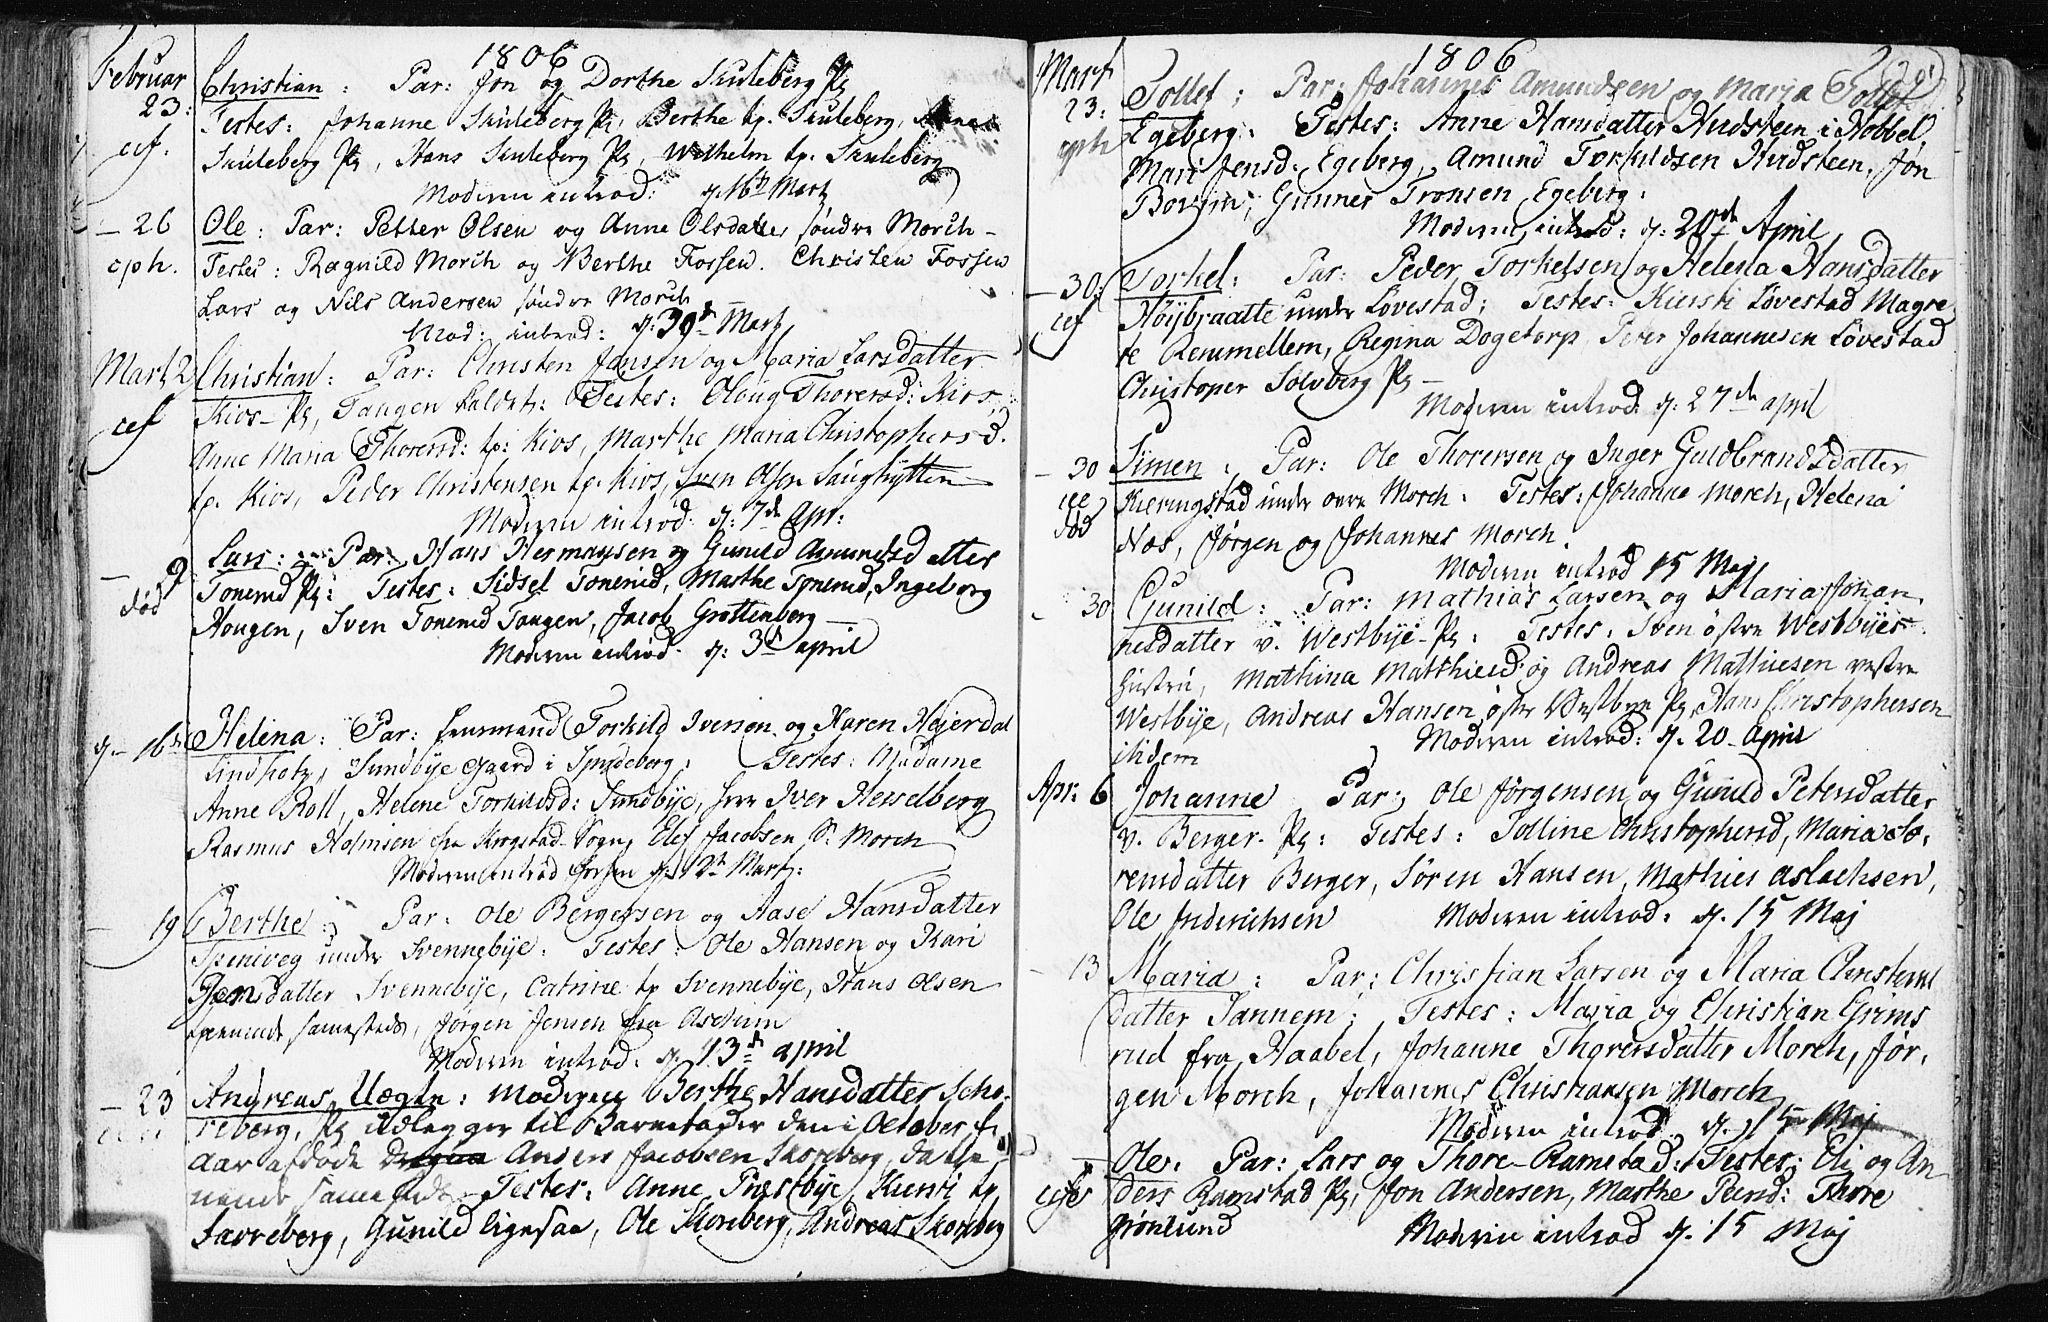 1806
Februar Christian: Par: Jon og Dorthe Skuleberg Pl
23: Testes: Johanne Skuleberg Pl, Berthe tp. Skuleberg,
Skuleberg Pl, Hans Skuleberg Pl, Wilhelm tp. Skuleberg
Moderen introd: d. 16 Martz
– 26 Ole: Par: Petter Olsen og Anne Olsdatter søndre Morch –
eph. Testes: Ragnild Morch og Berthe Fossen. Christen Fossen
Lars og Nils Andersen søndre Morch
Mod: introd: d: 30 Martz
Mart 2 Christian: Par: Christen Jansen og Maria Larsdatter
Kios – Pl, Tangen kaldet: Testes: Oloug Thorersd: Kios,
Anne Maria Thorersd: tp: Kios, Marthe Maria Christophersd.
tp. Kios, Peder Christensen tp. Kios, Sven Olsen Saughytten
Moderen introd. d: 7de Apr:
– 9 Lars: Par: Hans Hermansen og Gunild Amundsdatter
død Tonerud Pl: Testes: Sidsel Tonerud, Marthe Tonerud, Ingeborg
Hougen, Sven Tonerud Tangen, Jacob Grottenberg –
Moderen introd. d: 3d april
d – 16 Helena: Par: Lensmand Torkild Iverson og Karen Hejerdal
Lindholz, Sundbye Gaard i Spydeberg: Testes: Madame
Anne Roll, Helene Torkildsd: Sundbye, Herr Iver Hesselberg
Rasmus Holmsen fra Krogstad Sogn, Elef Jacobsen S. Morch
Moderen introd d. 12 Mart:
– 19 Berthe: Par: Ole Bergersen og Aase Hansdatter
Speneveg under Svennebye: Testes: Ole Hansen og Kari
Jensdatter Svennebye, Catrine tp Svennebye, Hans Olsen
tienende samesteds, Jørgen Jensen fra Aschum
Moderen introd. d. 13d april
– 23 Andreas Uægte: Moderen Berthe Hansdatter Sko-
reberg, Pl udlegger til Barnefader den i October f.
Aar afdøde Anders Jacobsen Skoreberg, da tie-
nende samesteds – Testes: Anne Præstbye, Kiersti tp
Favreberg, Gunild ligesaa, Ole Skoreberg, Andreas Skoreberg
1806
Mart Tollef: Par: Johannes Amundsen og Maria
23: Egeberg: Testes: Anne Hansdatter Hudsteen i Hobbel,
Mari Jensd: Egeberg, Amund Torkildsen Hudsteen, Jon
Bovim, Gunner Tronsen Egeberg:
Moderen introd: d: 20de April
– 30: Torkel: Par: Peder Torkelsen og Helena Hansdatter
Høybraatte under Løvestad; Testes: Kiersti Løvestad Magre-
te Remmellem, Regina Dogetorp, Peter Johannesen Løvestad
Christoper Solvberg Pl –
Moderen introd: d: 27de april
– 30 Simen: Par: Ole Thorersen og Inger Guldbrandsdatter
Kieringstad under øvre Morch: Testes: Johanne Morch, Helena
død Næs, Jørgen og Johannes Morch.
Moderen introd 15 Maj
– 30 Gunild: Par: Mathias Larsen og Maria Johan-
nesdatter v. Westbye – Pl: Testes: Sven østre Westbyes
hustru, Mathina Matthiesd: og Andreas Mathiesen vestre
Westbye, Andreas Hansen østre Westbye Pl, Hans Christophersen
ibidem Moderen introd: d. 20 – April
Apr: 6 Johanne Par: Ole Jørgensen og Gunild Petersdatter
v. Berger. Pl: Testes: Tolline Christophersd, Maria Sø-
rensdatter Berger, Søren Hansen, Mathies Aslachsen,
Ole Friderichsen Moderen introd: d. 15 Maj
– 13 Maria: Par: Christian Larsen og Maria Christens
datter Sannem; Testes: Maria og Christian Grims
rud fra Haabel, Johanne Thorersdatter Morch, Jør-
gen Morch, Johannes Christiansen Morch
Moderen introd. d. 15 Maj
– Ole: Par: Lars og Thore – Ramstad: Testes: Eli og An-
ders Ramstad Pl, Jon Andersen, Marthe Peersd: Thore
Grønlund Moderen introd d. 15 Maj